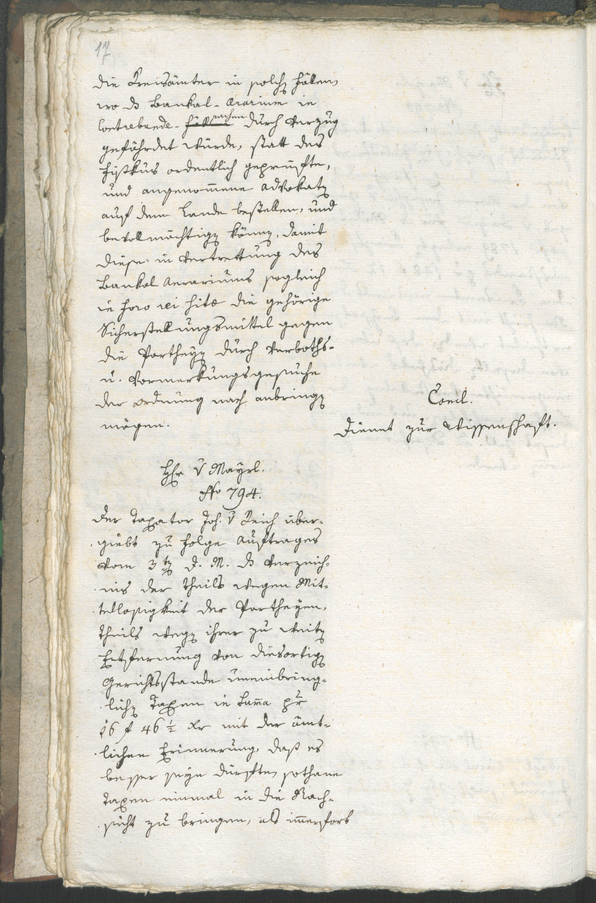 17
die Kreisämter in solch Fällen,
wo das Bankal-Aerarium in
Contrebande-Fällen durch Verzug
gefährdet würde, statt des
Fiskus ordentlich geprüfte,
und angenommene Advokaten
auf dem Lande bestellen, und
bevollmächtigen können, damit
diese in Vertrettung des
Bankal Aerariums sogleich
in foro rei sitae die gehörige
Sicherstellungsmittel gegen
die Partheyen durch Verboths-
u. Vormerkungsgesuche
der Ordnung nach anbringen
mögen.
Concl.
Dienet zur Wissenschaft.
Hr. v Mayrl.
No 794.
Der Taxator Joh. v Reich über-
giebt zu Folge Auftrages
vom 3ten d. M. das Verzeich-
nis der theils wegen Mit-
tellosigkeit der Partheyen,
theils wegen ihrer zu weiten
Entfernung von diesortigen
Gerichtsstande uneinbring-
lichen Taxen in Summa pr
16 f 46 1/2 Xr mit der ämt-
lichen Erinnerung, daß es
besser seyn dürfte, sothane
Taxen einmal in die Nach-
sicht zu bringen, als immerfort